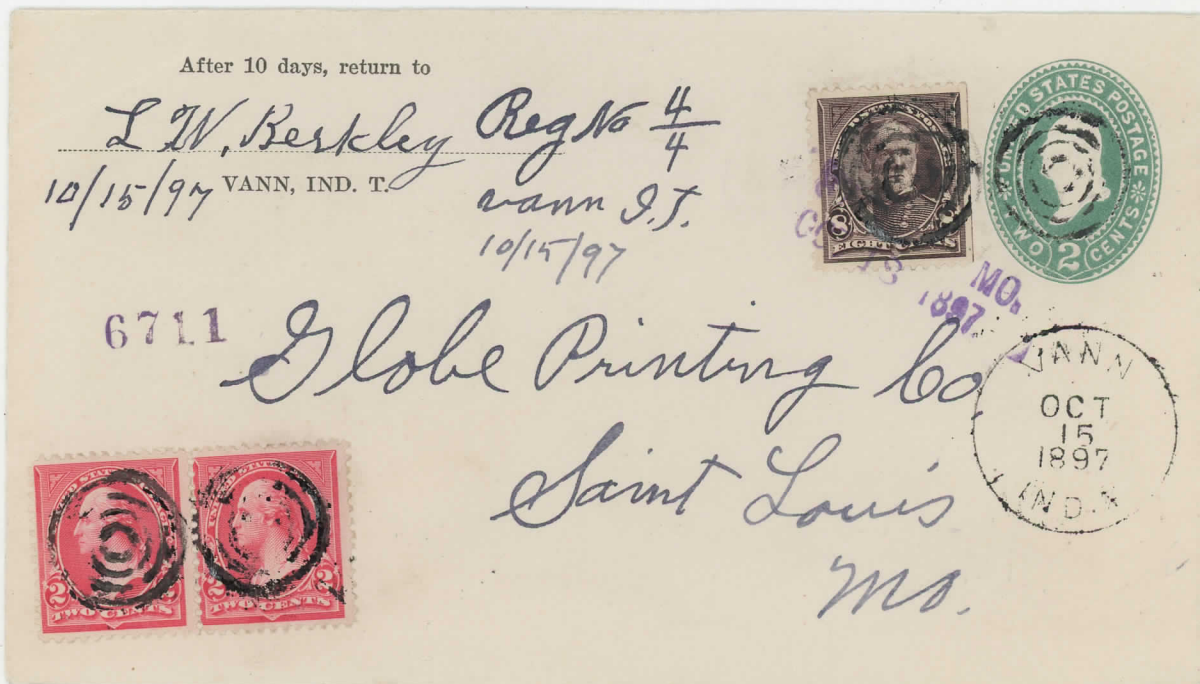 After 10 days, return to
L W, Berkley Reg No 4/4
10/15/97 VANN, IND. T. Vann I.T.
10/15/97
UNITED STATES POSTAGE
TWO 2 CENTS
8
EIGHT CENTS
MO.
1897
6711
Globe Printing Co.
Saint Louis
Mo.
VANN
OCT
15
1897
IND.
2 2
TWO CENTS
UNITED STATES
2 2
TWO CENTS